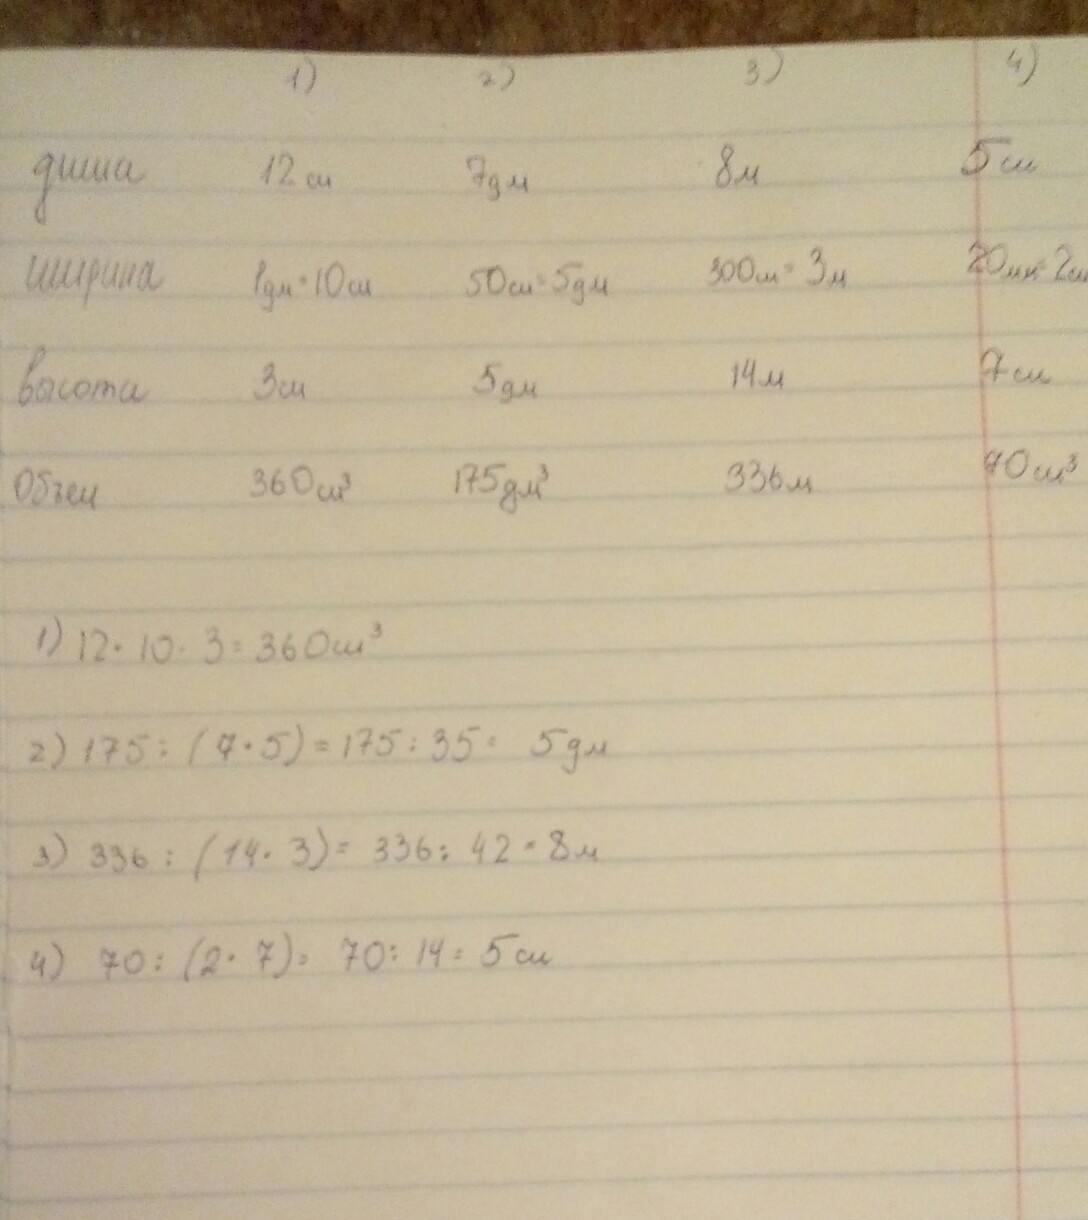 1) 2) 3) 4)
длина 12 см 7 дм 8 м 5 см
ширина 1 дм = 10 см 50 см = 5 дм 300 см = 3 м 20 мм = 2 см
высота 3 см 5 дм 14 м 7 см
Объем 360 см³ 175 дм³ 336 м 70 см³
1) 12 · 10 · 3 = 360 см³
2) 175 : (7 · 5) = 175 : 35 = 5 дм
3) 336 : (14 · 3) = 336 : 42 = 8 м
4) 70 : (2 · 7) = 70 : 14 = 5 см